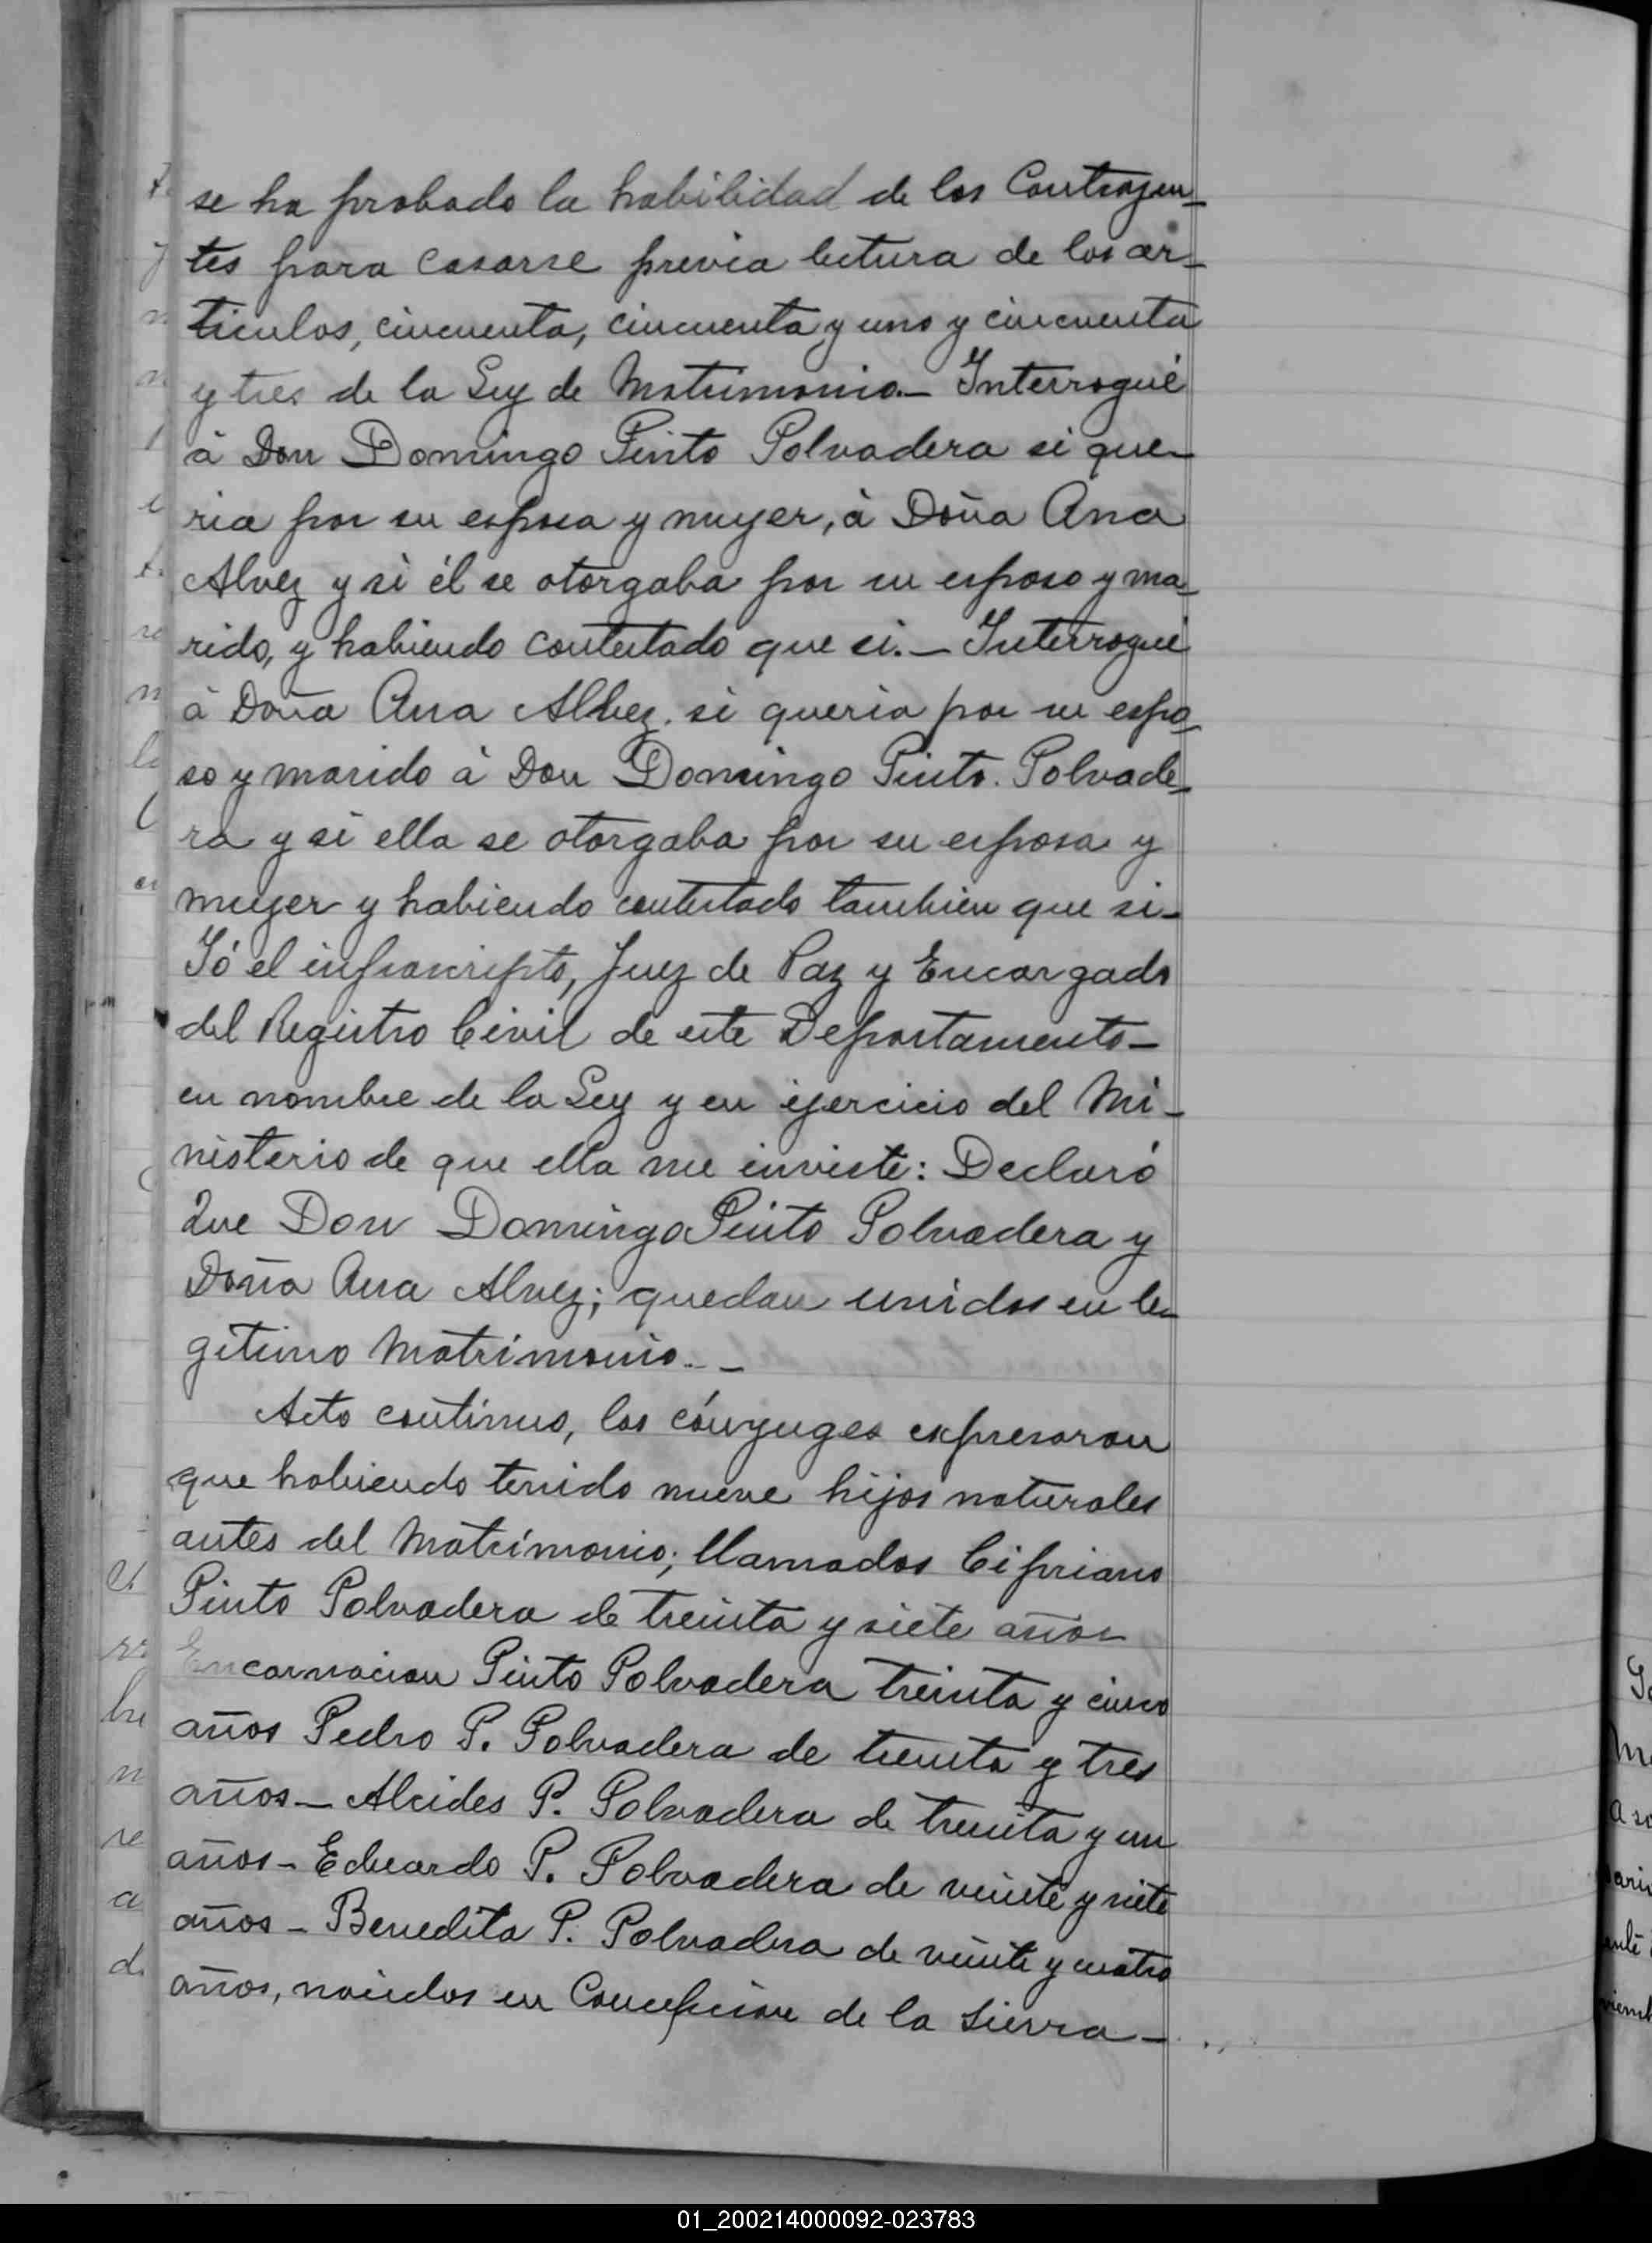 se ha probado la habilidad de los Contrayen-
tes para casarse previa lectura de los ar-
ticulos, cincuenta, cincuenta y uno y cincuenta
y tres de la Ley de Matrimonio.- Interrogué
à Don Domingo Pinto Polvadera si que-
ria por su esposa y muyer, à Doña Ana
Alvez y si él se otorgaba por su esposo y ma-
rido, y habiendo contestado que si.- Interrogué
à Doña Ana Alvez. si queria por su espo-
so y marido à Don Domingo Pinto. Polvade-
ra y si ella se otorgaba por su esposa y
muyer y habiendo contestado tambien que si-
Yó el infrascripto, Juez de Paz y Encargado
del Registro Civil de este Departamento-
en nombre de la Ley y en ejercicio del Mi-
nisterio de que ella me inviste: Declaró
Que Don Domingo Pinto Polvadera y
Doña Ana Alvez; quedan unidos en le-
gitimo Matrimonio.-
Acto continuo, los cónyuges expresaron
que habiendo tenido nueve hijos naturales
antes del Matrimonio; llamados Cipriano
Pinto Polvadera de treinta y siete años
Encarnacion Pinto Polvadera treinta y cinco
años Pedro P. Polvadera de treinta y tres
años- Alcides P. Polvadera de treinta y un
años- Eduardo P. Polvadera de veinte y siete
años- Benedita P. Polvadera de veinte y cuatro
años, nacidos en Concepcion de la Sierra-
01_200214000092-023783